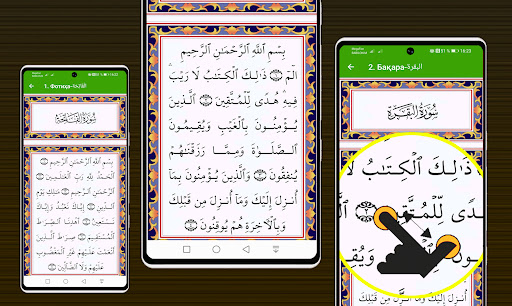 1. Фотиҳа-الفاتحة
سُورَةُ الْفَاتِحَةِ
بِسْمِ ٱللَّهِ ٱلرَّحْمَٰنِ ٱلرَّحِيمِ ۝
ٱلْحَمْدُ لِلَّهِ رَبِّ ٱلْعَٰلَمِينَ
۝ ٱلرَّحْمَٰنِ ٱلرَّحِيمِ ۝ مَٰلِكِ
يَوْمِ ٱلدِّينِ ۝ إِيَّاكَ نَعْبُدُ وَإِيَّاكَ
نَسْتَعِينُ ۝ ٱهْدِنَا ٱلصِّرَٰطَ
ٱلْمُسْتَقِيمَ ۝ صِرَٰطَ ٱلَّذِينَ
أَنْعَمْتَ عَلَيْهِمْ غَيْرِ ٱلْمَغْضُوبِ
عَلَيْهِمْ وَلَا ٱلضَّآلِّينَ ۝
بِسْمِ ٱللَّهِ ٱلرَّحْمَٰنِ ٱلرَّحِيمِ
الٓمٓ ۝ ذَٰلِكَ ٱلْكِتَٰبُ لَا رَيْبَ ۛ
فِيهِ ۛ هُدًى لِّلْمُتَّقِينَ ۝ ٱلَّذِينَ
يُؤْمِنُونَ بِٱلْغَيْبِ وَيُقِيمُونَ
ٱلصَّلَوٰةَ وَمِمَّا رَزَقْنَٰهُمْ
يُنفِقُونَ ۝ وَٱلَّذِينَ يُؤْمِنُونَ بِمَآ
أُنزِلَ إِلَيْكَ وَمَآ أُنزِلَ مِن قَبْلِكَ
وَبِٱلْأٓخِرَةِ هُمْ يُوقِنُونَ ۝
16:23
2. Бақара-البقرة
سُورَةُ الْبَقَرَةِ
ذَٰلِكَ ٱلْكِتَٰبُ